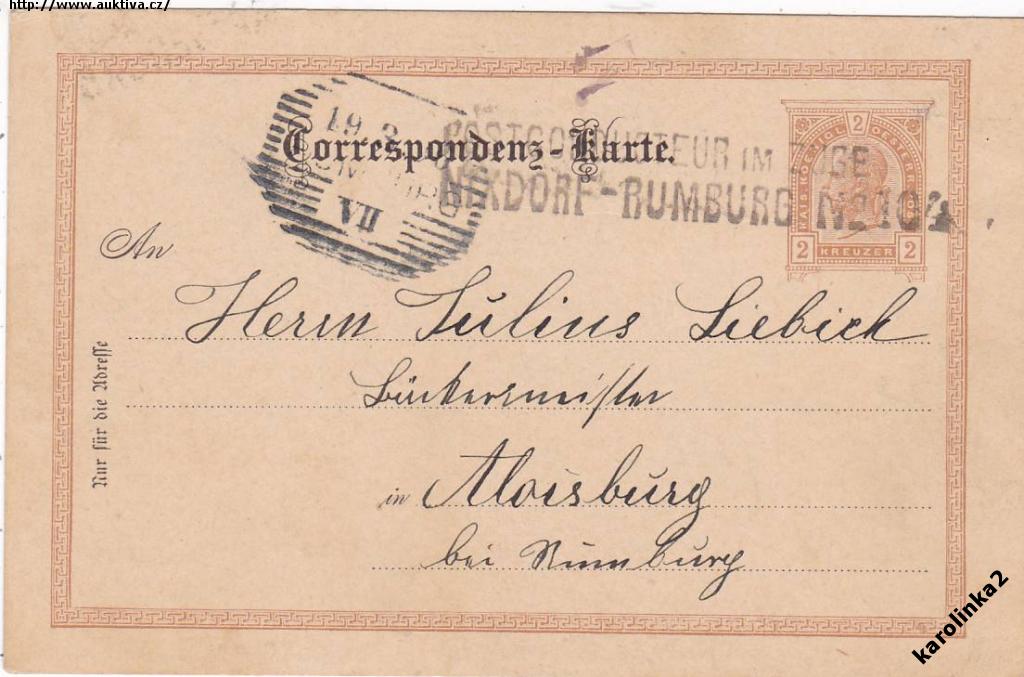 http://www.auktiva.cz/
19 3
VII
POSTCONDUCTEUR IM ZUGE
NIXDORF-RUMBURG No 104
Correspondenz-Karte.
2
KREUZER
2 2
An
Herrn Julius Liebick
Bäckermeister
in Aloisburg
bei Rumburg
Nur für die Adresse
karolinka2